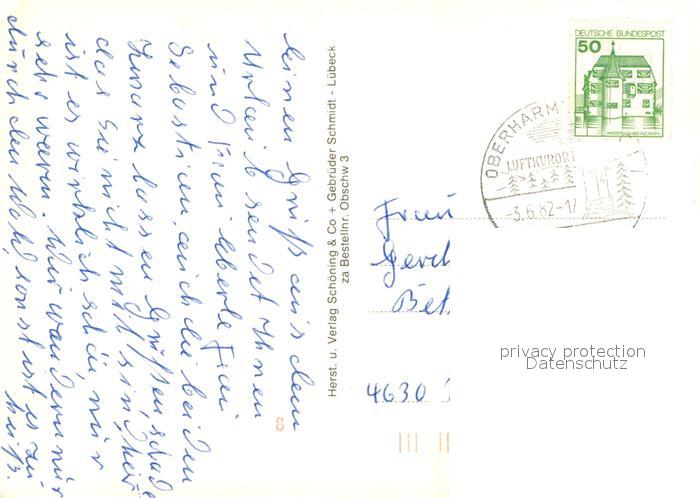 einen Gruß aus dem
Urlaub sendet Ihnen
und Frau Eberle Frau
Sebastian, auch die beiden
lassen Grüßen, schade
das Sie nicht mit sind, hier
ist es wirklich schön, nur
sehr warm. Wir wandern nur
durch den Wald, sonst ist es zu
heiß.
Herst. u. Verlag Schöning & Co + Gebrüder Schmidt - Lübeck
za Bestellnr. Obschw 3
DEUTSCHE BUNDESPOST
50
WASSERSCHLOSS INZLINGEN
OBERHARM
LUFTKURORT
-3.6.82-17
Frau
Gerd
Bet
4630
8
privacy protection
Datenschutz